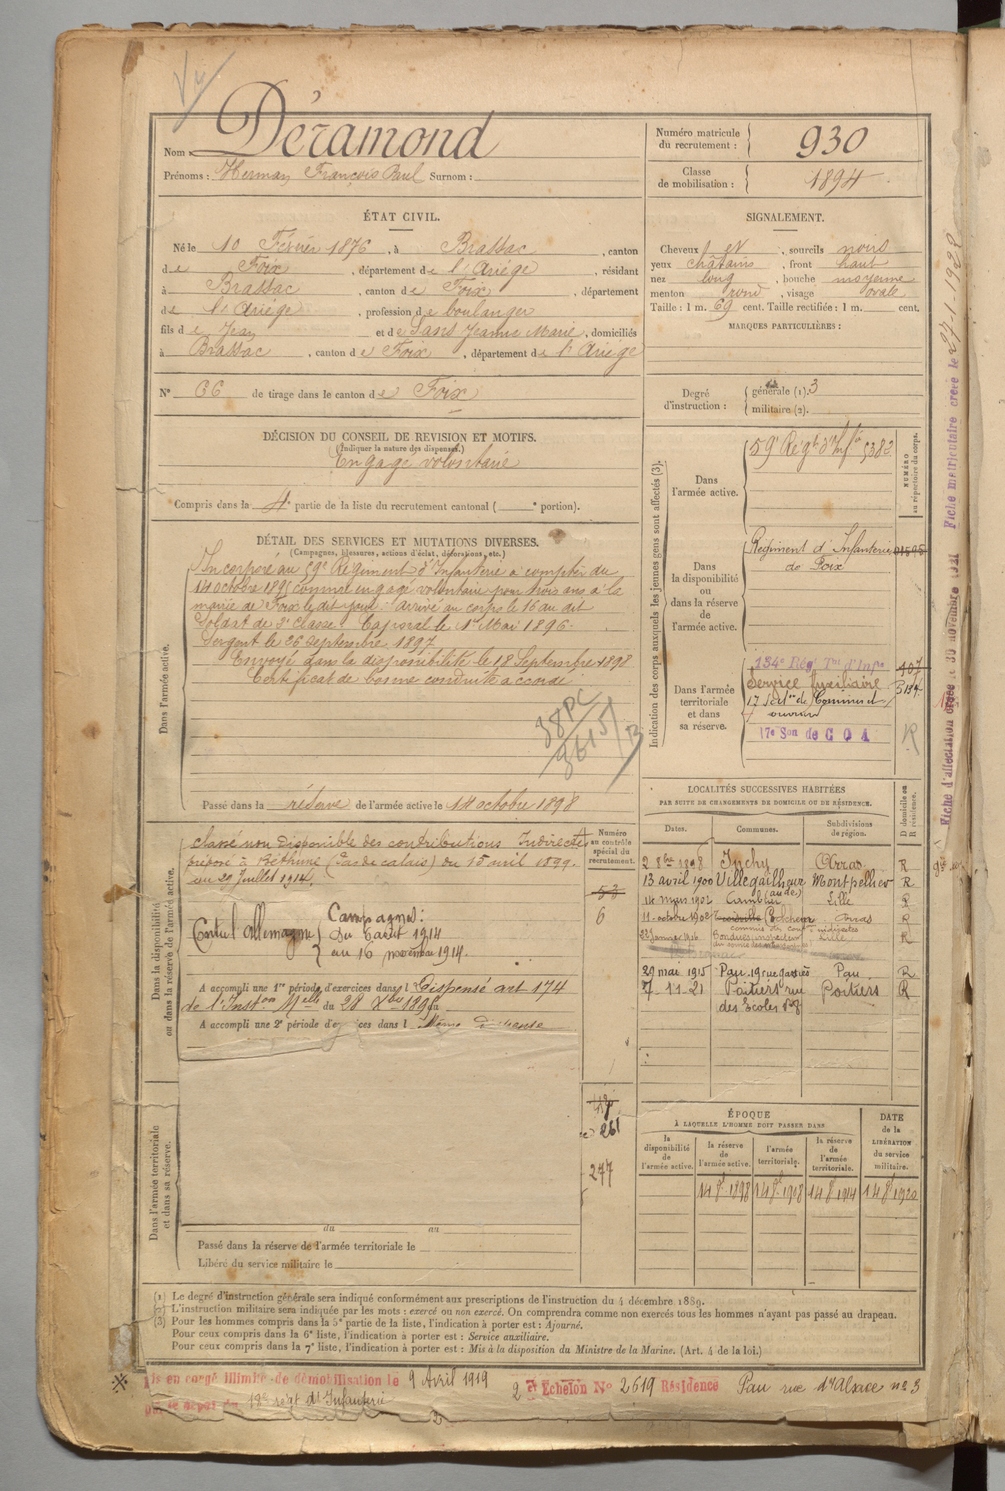 Nom : Déramond
Prénoms : Herman François Paul Surnom :
Numéro matricule du recrutement : 930
Classe de mobilisation : 1894
ÉTAT CIVIL.
Né le 10 Février 1876, à Brassac, canton
de Foix, département de l'Ariège, résidant
à Brassac, canton de Foix, département
de l'Ariège, profession de boulanger
fils de Jean et de Sans Jeanne Marie, domiciliés
à Brassac, canton de Foix, département de l'Ariège
N° 66 de tirage dans le canton de Foix
SIGNALEMENT.
Cheveux et, sourcils noirs
yeux châtains, front haut
nez long, bouche moyenne
menton rond, visage ovale
Taille : 1 m. 69 cent. Taille rectifiée : 1 m. cent.
MARQUES PARTICULIÈRES :
Degré d'instruction : générale (1). 3
militaire (2).
DÉCISION DU CONSEIL DE REVISION ET MOTIFS.
(Indiquer la nature des dispenses.)
Engagé volontaire
Compris dans la 4e partie de la liste du recrutement cantonal ( e portion).
DÉTAIL DES SERVICES ET MUTATIONS DIVERSES.
(Campagnes, blessures, actions d'éclat, décorations, etc.)
Dans l'armée active.
Incorporé au 59e Régiment d'Infanterie à compter du
14 octobre 1895 comme engagé volontaire pour trois ans à la
mairie de Foix le dit jour. Arrivé au corps le 16 au dit
Soldat de 2e classe. Caporal le 1er Mai 1896.
Sergent le 26 septembre 1897
Envoyé dans la disponibilité le 18 Septembre 1898
Certificat de bonne conduite accordé
38 PC
3615/13
Passé dans la réserve de l'armée active le 14 octobre 1898
Indication des corps auxquels les jeunes gens sont affectés (3).
NUMÉRO au répertoire du corps.
Dans l'armée active.
59e Régt d'Infie 5382
Dans la disponibilité ou dans la réserve de l'armée active.
Régiment d'Infanterie
de Foix
Dans l'armée territoriale et dans sa réserve.
134e Rég Tal d'Infie 407
Service Auxiliaire
17 Sect°n de Commis et
ouvriers
17e Son de C O A
R
Fiche d'affectation créée le 30 novembre 1921 Fiche matriculaire créée le 27-1-1928
LOCALITÉS SUCCESSIVES HABITÉES
PAR SUITE DE CHANGEMENTS DE DOMICILE OU DE RÉSIDENCE.
D domicile ou R résidence.
Dates. Communes. Subdivisions de région.
2 8bre 1898 Inchy Arras R
13 avril 1900 Villegailhenc (aude) Montpellier R
14 mars 1902 Cambrai Lille R
11 octobre 1902 Arras R
22 Janvier Lille R
29 mai 1915 Pau, 19 rue Pau R
7-11-21 Poitiers rue Poitiers R
des Ecoles n°8
Dans la disponibilité ou dans la réserve de l'armée active.
Numéro au contrôle spécial du recrutement.
Classé non Disponible des contributions Indirectes
préposé à Béthune (Pas de calais) du 15 avril 1899
au 29 Juillet 1914.
53
6
Campagnes :
Contre l'Allemagne Du 4 août 1914
au 16 novembre 1914.
A accompli une 1re période d'exercices dans l Dispensé art 174
de l'Inston Melle du 28 Xbre 1895 au
A accompli une 2e période d'exercices dans l Même dispense
Dans l'armée territoriale et dans sa réserve.
261
277
du au
Passé dans la réserve de l'armée territoriale le
Libéré du service militaire le
ÉPOQUE
À LAQUELLE L'HOMME DOIT PASSER DANS
la disponibilité de l'armée active. la réserve de l'armée active. l'armée territoriale. la réserve de l'armée territoriale. DATE de la LIBÉRATION du service militaire.
14 8bre 1898 14 8bre 1908 14 8bre 1914 14 8bre 1920
(1) Le degré d'instruction générale sera indiqué conformément aux prescriptions de l'instruction du 4 décembre 1889.
(2) L'instruction militaire sera indiquée par les mots : exercé ou non exercé. On comprendra comme non exercés tous les hommes n'ayant pas passé au drapeau.
(3) Pour les hommes compris dans la 5e partie de la liste, l'indication à porter est : Ajourné.
Pour ceux compris dans la 6e liste, l'indication à porter est : Service auxiliaire.
Pour ceux compris dans la 7e liste, l'indication à porter est : Mis à la disposition du Ministre de la Marine. (Art. 4 de la loi.)
Mis en congé illimité de démobilisation le 9 Avril 1919 2e Echelon N° 2619 Résidence Pau rue d'Alsace n° 3
par le dépôt du 18e régt d'Infanterie